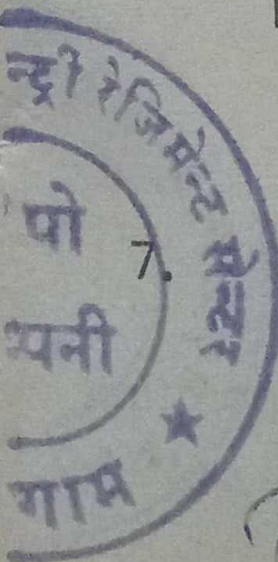 न्द्री रेजिमेन्ट सेन्टर
पो
7.
पनी
गाम